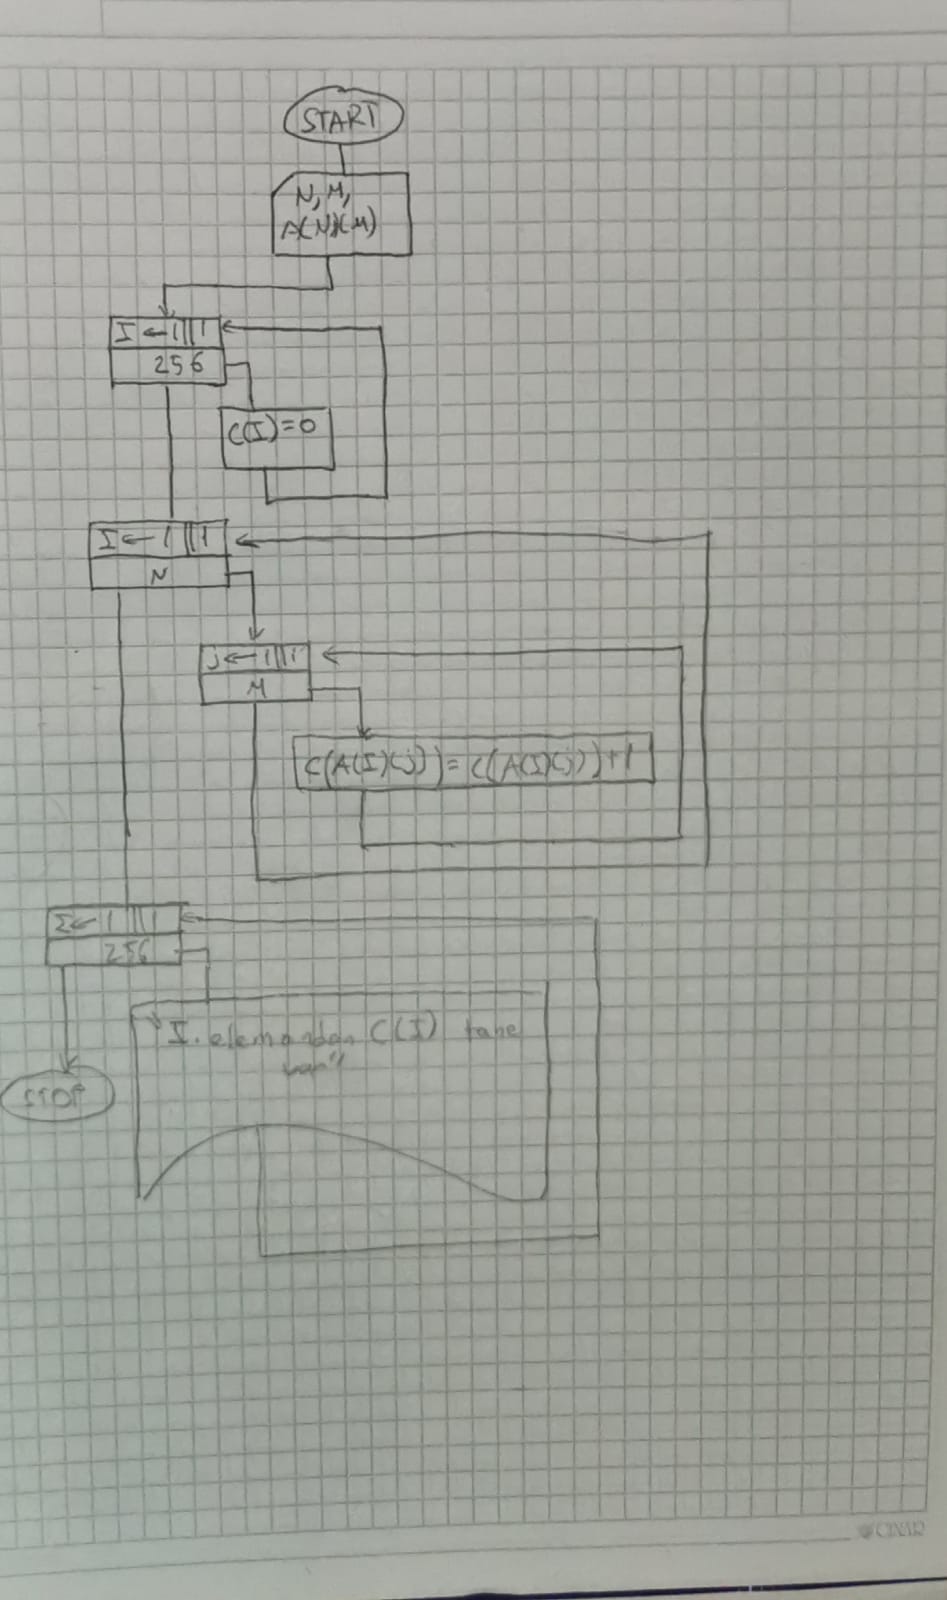 START
N, M,
A(N)(M)
I ← 1 ||| 1
256
C(I)=0
I ← 1 ||| 1
N
j ← 1 ||| 1
M
C(A(I)(j))=C((A(I)(j))+1
I ← 1 ||| 1
256
"I. elemandan C(I) tane
var"
STOP
ÇINAR